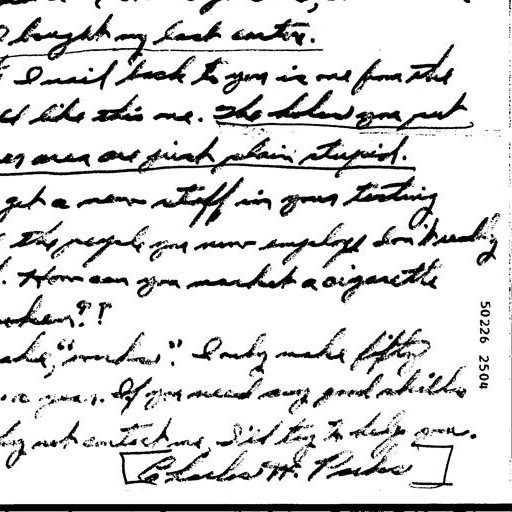 I bought my last carton.
I mail back to you is one from the
like this one. The holes you put
area are just plain stupid.
get a new staff in your testing
the people you now employ don't really
. How can you market a cigarette
??
" " I only make fifty
a year. If you need any good skills
not contact me, I'll try to help you.
Charles H. Parks
50226 2504